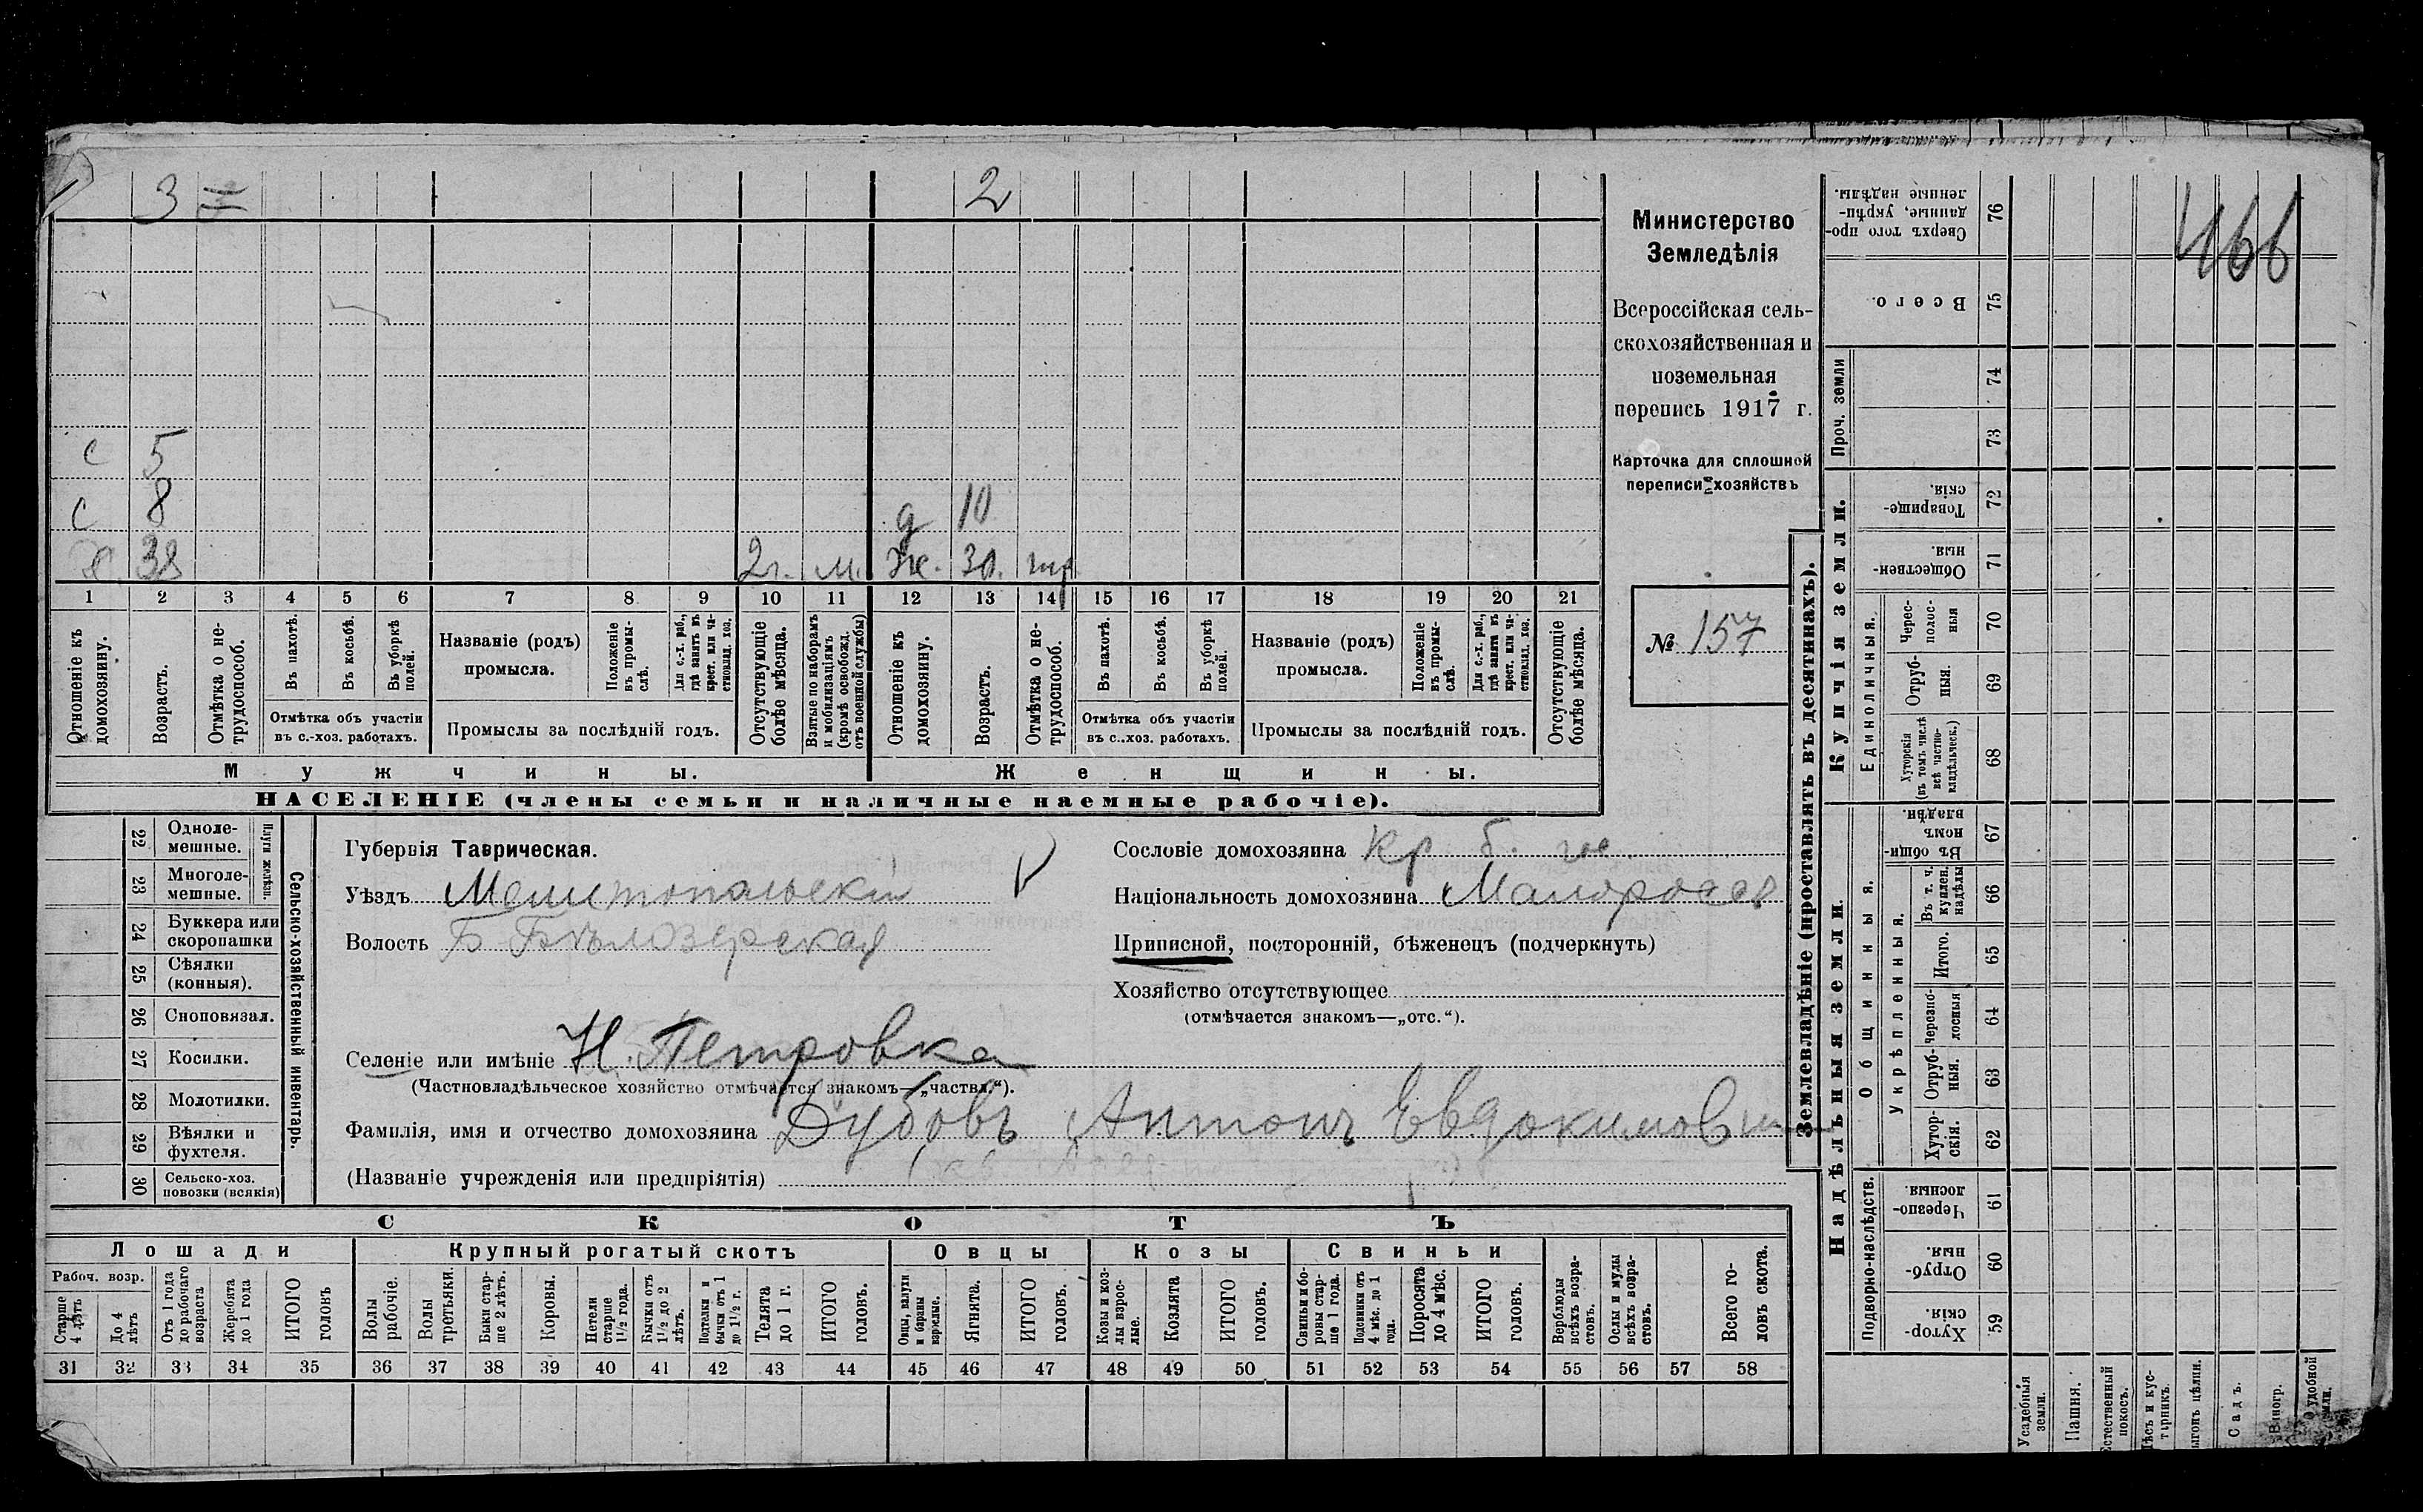 3
2
466
Министерство
Земледѣлія
Всероссійская сель-
скохозяйственная и
поземельная
перепись 1917 г.
Карточка для сплошной
переписи хозяйствъ
№ 157
с 5
с 8
д 10
Х. 38 2 г. м. Ж. 30.
1 2 3 4 5 6 7 8 9 10 11 12 13 14 15 16 17 18 19 20 21
Отношеніе къ домохозяину.
Возрастъ.
Отмѣтка о не-трудоспособ.
Въ пахотѣ.
Въ косьбѣ.
Въ уборкѣ полей.
Отмѣтка объ участіи
въ с.-хоз. работахъ.
Названіе (родъ)
промысла.
Положеніе въ промы-слѣ.
Для с.-х. раб., гдѣ занятъ въ крест. или ча-стновлад. хоз.
Промыслы за послѣдній годъ.
Отсутствующіе болѣе мѣсяца.
Взятые по наборамъ и мобилизаціямъ (кромѣ освобожд. отъ военной службы)
Отношеніе къ домохозяину.
Возрастъ.
Отмѣтка о не-трудоспособ.
Въ пахотѣ.
Въ косьбѣ.
Въ уборкѣ полей.
Отмѣтка объ участіи
въ с.-хоз. работахъ.
Названіе (родъ)
промысла.
Положеніе въ промы-слѣ.
Для с.-х. раб., гдѣ занята въ крест. или ча-стновлад. хоз.
Промыслы за послѣдній годъ.
Отсутствующіе болѣе мѣсяца.
Мужчины.
Женщины.
НАСЕЛЕНІЕ (члены семьи и наличные наемные рабочіе).
22 Одноле-мешные.
23 Многоле-мешные.
Плуги желѣзн.
24 Буккера или скоропашки
25 Сѣялки (конныя).
26 Сноповязал.
27 Косилки.
28 Молотилки.
29 Вѣялки и фухтеля.
30 Сельско-хоз. повозки (всякія)
Сельско-хозяйственный инвентарь.
Губернія Таврическая.
Уѣздъ Мелитопольскій
Волость Б-Бѣлозерская
Селеніе или имѣніе Н. Петровка
(Частновладѣльческое хозяйство отмѣчается знакомъ—„частвл.“).
Фамилія, имя и отчество домохозяина Дубовъ Антонъ Евдокимович
(Названіе учрежденія или предпріятія)
Сословіе домохозяина кр б. гос.
Національность домохозяина Малороссъ
Приписной, посторонній, бѣженецъ (подчеркнуть)
Хозяйство отсутствующее
(отмѣчается знакомъ—„отс.“).
СКОТЪ
Лошади
Крупный рогатый скотъ
Овцы
Козы
Свиньи
Рабоч. возр.
Старше 4 лѣтъ
До 4 лѣтъ
Отъ 1 года до рабочаго возраста
Жеребята до 1 года
ИТОГО головъ
Волы рабочіе.
Волы третьяки.
Быки стар-ше 2 лѣтъ.
Коровы.
Нетели старше 1½ года.
Бычки отъ 1½ до 2 лѣтъ.
Подтелки и бычки отъ 1 до 1½ г.
Телята до 1 г.
ИТОГО головъ.
Овцы, валухи и бараны взрослые.
Ягнята.
ИТОГО головъ.
Козы и коз-лы взрос-лые.
Козлята
ИТОГО головъ.
Свиньи и бо-ровы стар-ше 1 года.
Подсвинки отъ 4 мѣс. до 1 года.
Поросята до 4 мѣс.
ИТОГО головъ.
Верблюды всѣхъ возра-стовъ.
Ослы и мулы всѣхъ возра-стовъ.
Всего го-ловъ скота.
31 32 33 34 35 36 37 38 39 40 41 42 43 44 45 46 47 48 49 50 51 52 53 54 55 56 57 58
Землевладѣніе (проставлять въ десятинахъ).
Надѣльныя земли.
Купчія земли.
Проч. земли
Подворно-наслѣдств.
Общинныя.
Укрѣпленныя.
Единоличныя.
76 Сверхъ того про-данные, укрѣп-ленные надѣлы.
75 Всего.
74
73
72 Товарище-скія.
71 Обществен-ныя.
70 Черес-полос-ныя
69 Отруб-ныя.
68 Хуторскія (въ томъ числѣ всѣ частно-владѣльческ.)
67 Въ общи-номъ владѣн.
66 Въ т. ч. куплен. надѣлы
65 Итого.
64 Черезпо-лосныя
63 Отруб-ныя.
62 Хутор-скія.
61 Черезпо-лосныя.
60 Отруб-ныя.
59 Хутор-скія.
Усадебныя земли.
Пашня.
Естественный покосъ.
Лѣсъ и кус-тарникъ.
Выгонъ цѣлин.
Садъ.
Виногр.